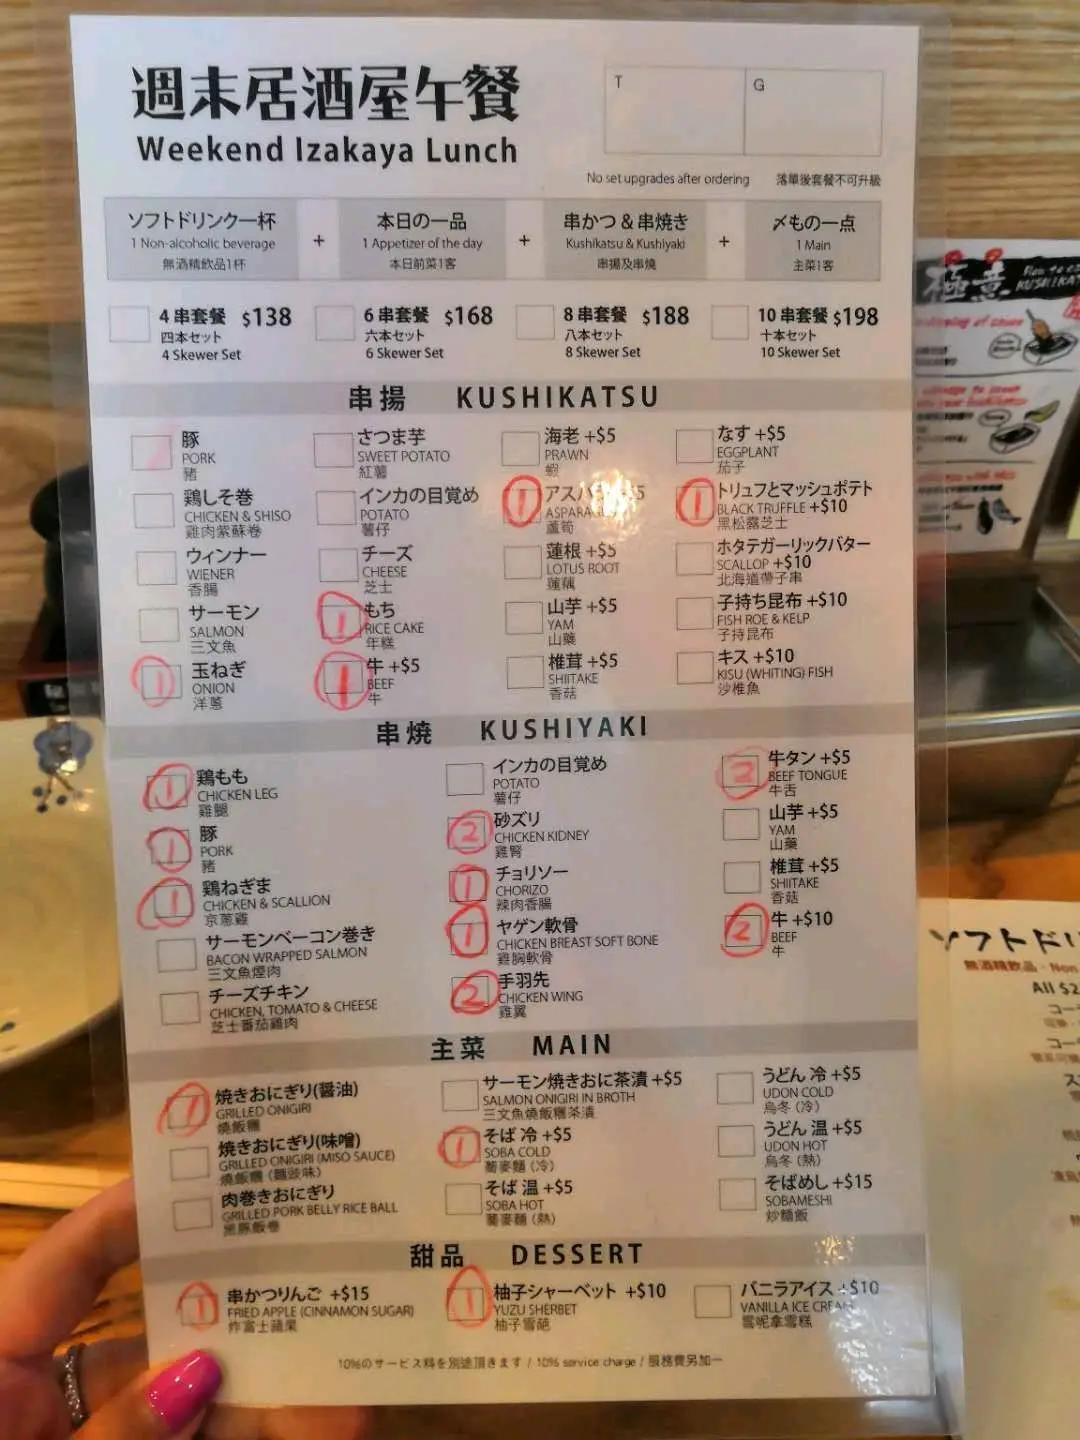 週末居酒屋午餐
Weekend Izakaya Lunch
T
G
No set upgrades after ordering 落單後套餐不可升級
ソフトドリンク一杯
1 Non-alcoholic beverage
無酒精飲品1杯
+
本日の一品
1 Appetizer of the day
本日前菜1客
+
串かつ & 串焼き
Kushikatsu & Kushiyaki
串揚及串燒
+
〆もの一点
1 Main
主菜1客
4 串套餐 $138
四本セット
4 Skewer Set
6 串套餐 $168
六本セット
6 Skewer Set
8 串套餐 $188
八本セット
8 Skewer Set
10 串套餐 $198
十本セット
10 Skewer Set
串揚 KUSHIKATSU
豚
PORK
豬
鶏しそ巻
CHICKEN & SHISO
雞肉紫蘇卷
ウィンナー
WIENER
香腸
サーモン
SALMON
三文魚
1 玉ねぎ
ONION
洋蔥
さつま芋
SWEET POTATO
紅薯
インカの目覚め
POTATO
薯仔
チーズ
CHEESE
芝士
1 もち
RICE CAKE
年糕
1 牛 +$5
BEEF
牛
海老 +$5
PRAWN
蝦
1 アスパラ +$5
ASPARAGUS
蘆筍
蓮根 +$5
LOTUS ROOT
蓮藕
山芋 +$5
YAM
山藥
椎茸 +$5
SHIITAKE
香菇
なす +$5
EGGPLANT
茄子
1 トリュフとマッシュポテト
BLACK TRUFFLE +$10
黑松露芝士
ホタテガーリックバター
SCALLOP +$10
北海道帶子串
子持ち昆布 +$10
FISH ROE & KELP
子持昆布
キス +$10
KISU (WHITING) FISH
沙椎魚
串焼 KUSHIYAKI
1 鶏もも
CHICKEN LEG
雞腿
1 豚
PORK
豬
1 鶏ねぎま
CHICKEN & SCALLION
京蔥雞
サーモンベーコン巻き
BACON WRAPPED SALMON
三文魚煙肉
チーズチキン
CHICKEN, TOMATO & CHEESE
芝士番茄雞肉
インカの目覚め
POTATO
薯仔
2 砂ズリ
CHICKEN KIDNEY
雞腎
1 チョリソー
CHORIZO
辣肉香腸
1 ヤゲン軟骨
CHICKEN BREAST SOFT BONE
雞胸軟骨
2 手羽先
CHICKEN WING
雞翼
2 牛タン +$5
BEEF TONGUE
牛舌
山芋 +$5
YAM
山藥
椎茸 +$5
SHIITAKE
香菇
2 牛 +$10
BEEF
牛
主菜 MAIN
1 焼きおにぎり(醤油)
GRILLED ONIGIRI
燒飯糰
焼きおにぎり(味噌)
GRILLED ONIGIRI (MISO SAUCE)
燒飯糰 (麵豉味)
肉巻きおにぎり
GRILLED PORK BELLY RICE BALL
黑豚飯卷
サーモン焼きおに茶漬 +$5
SALMON ONIGIRI IN BROTH
三文魚燒飯糰茶漬
1 そば 冷 +$5
SOBA COLD
蕎麥麵 (冷)
そば 温 +$5
SOBA HOT
蕎麥麵 (熱)
うどん 冷 +$5
UDON COLD
烏冬 (冷)
うどん 温 +$5
UDON HOT
烏冬 (熱)
そばめし +$15
SOBAMESHI
炒麵飯
甜品 DESSERT
1 串かつりんご +$15
FRIED APPLE (CINNAMON SUGAR)
炸富士蘋果
1 柚子シャーベット +$10
YUZU SHERBET
柚子雪葩
バニラアイス +$10
VANILLA ICE CREAM
雲呢拿雪糕
10%のサービス料を別途頂きます / 10% service charge / 服務費另加一
極意
How to
KUSHIKAT
ソフトドリ
無酒精飲品・Non
All $2